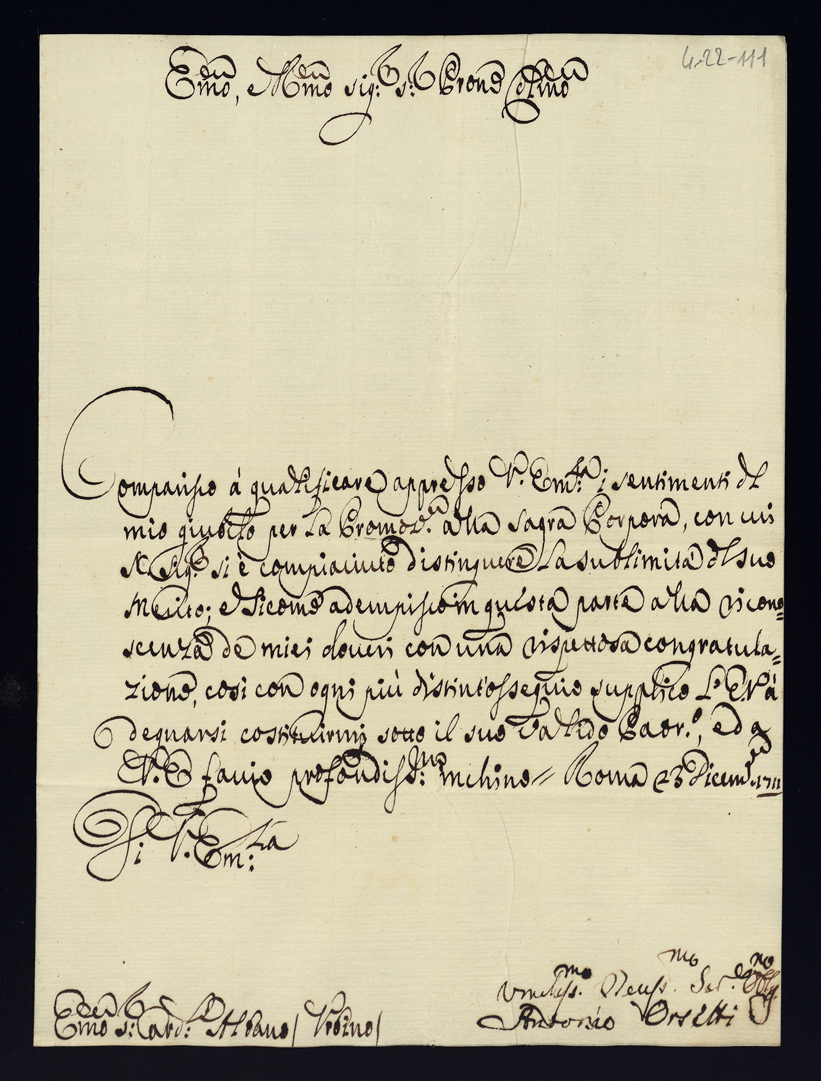 4-22-111
Em̃o, e Rm̃o Sig:r S:r Prone Col̃mo
Comparisco à qualificare appresso V. Em:za i sentimenti del
mio giubilo per la Promoz:e alla Sagra Porpora, con cui
N. Sig:re si è compiaciuto distinguere la sublimità del suo
Merito; e siccome adempisco in questa parte alla ricono=
scenza de miei doveri con una rispettosa congratula=
zione, così con ogni più distint'ossequio supplico L'E.V. à
degnarsi costituirmi sotto il suo valido Padr:o, ed a
V. E. faccio profondiss:mo inchino // Roma 23 Dicemb. 1711
Di V. Em:za
Umiliss.mo Reverss.mo Ser.e Obblig.mo
Antonio Orsetti
Em̃o S:r Card:l Albano / Urbino /